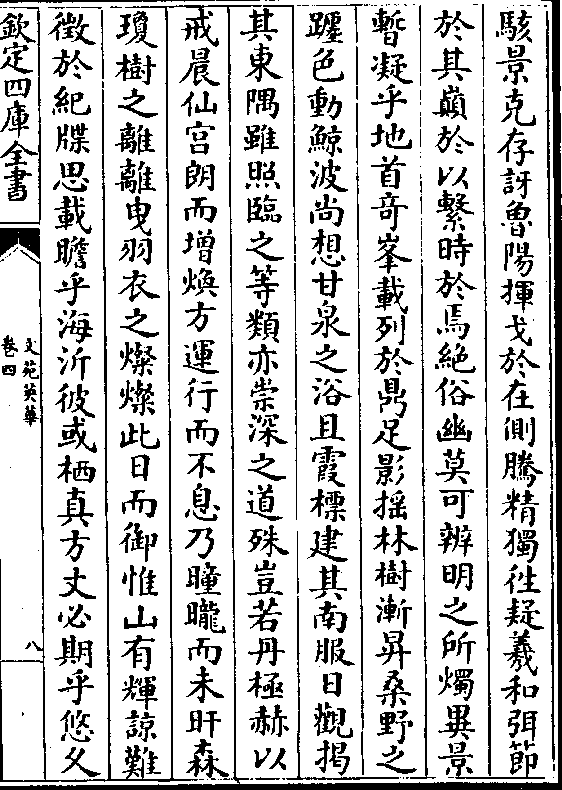 駭景克存訝魯陽揮戈於在側騰精獨徃疑羲和弭節
於其巔於以繫時於焉絶俗幽莫可辨明之所燭異景
暫凝乎地首竒峯載列於鼎足影揺林樹漸昇桑野之
躔色動鯨波尚想甘泉之浴且霞標建其南服日觀揭
其東隅雖照臨之等類亦崇深之道殊豈若丹極赫以
戒晨仙宫朗而增煥方運行而不息乃曈曨而未旰森
瓊樹之離離曵羽衣之燦燦此日而御惟山有輝諒難
徴於紀牒思載瞻乎海沂彼或栖真方丈必期乎悠久
欽定四庫全書
文苑英華
卷四
八